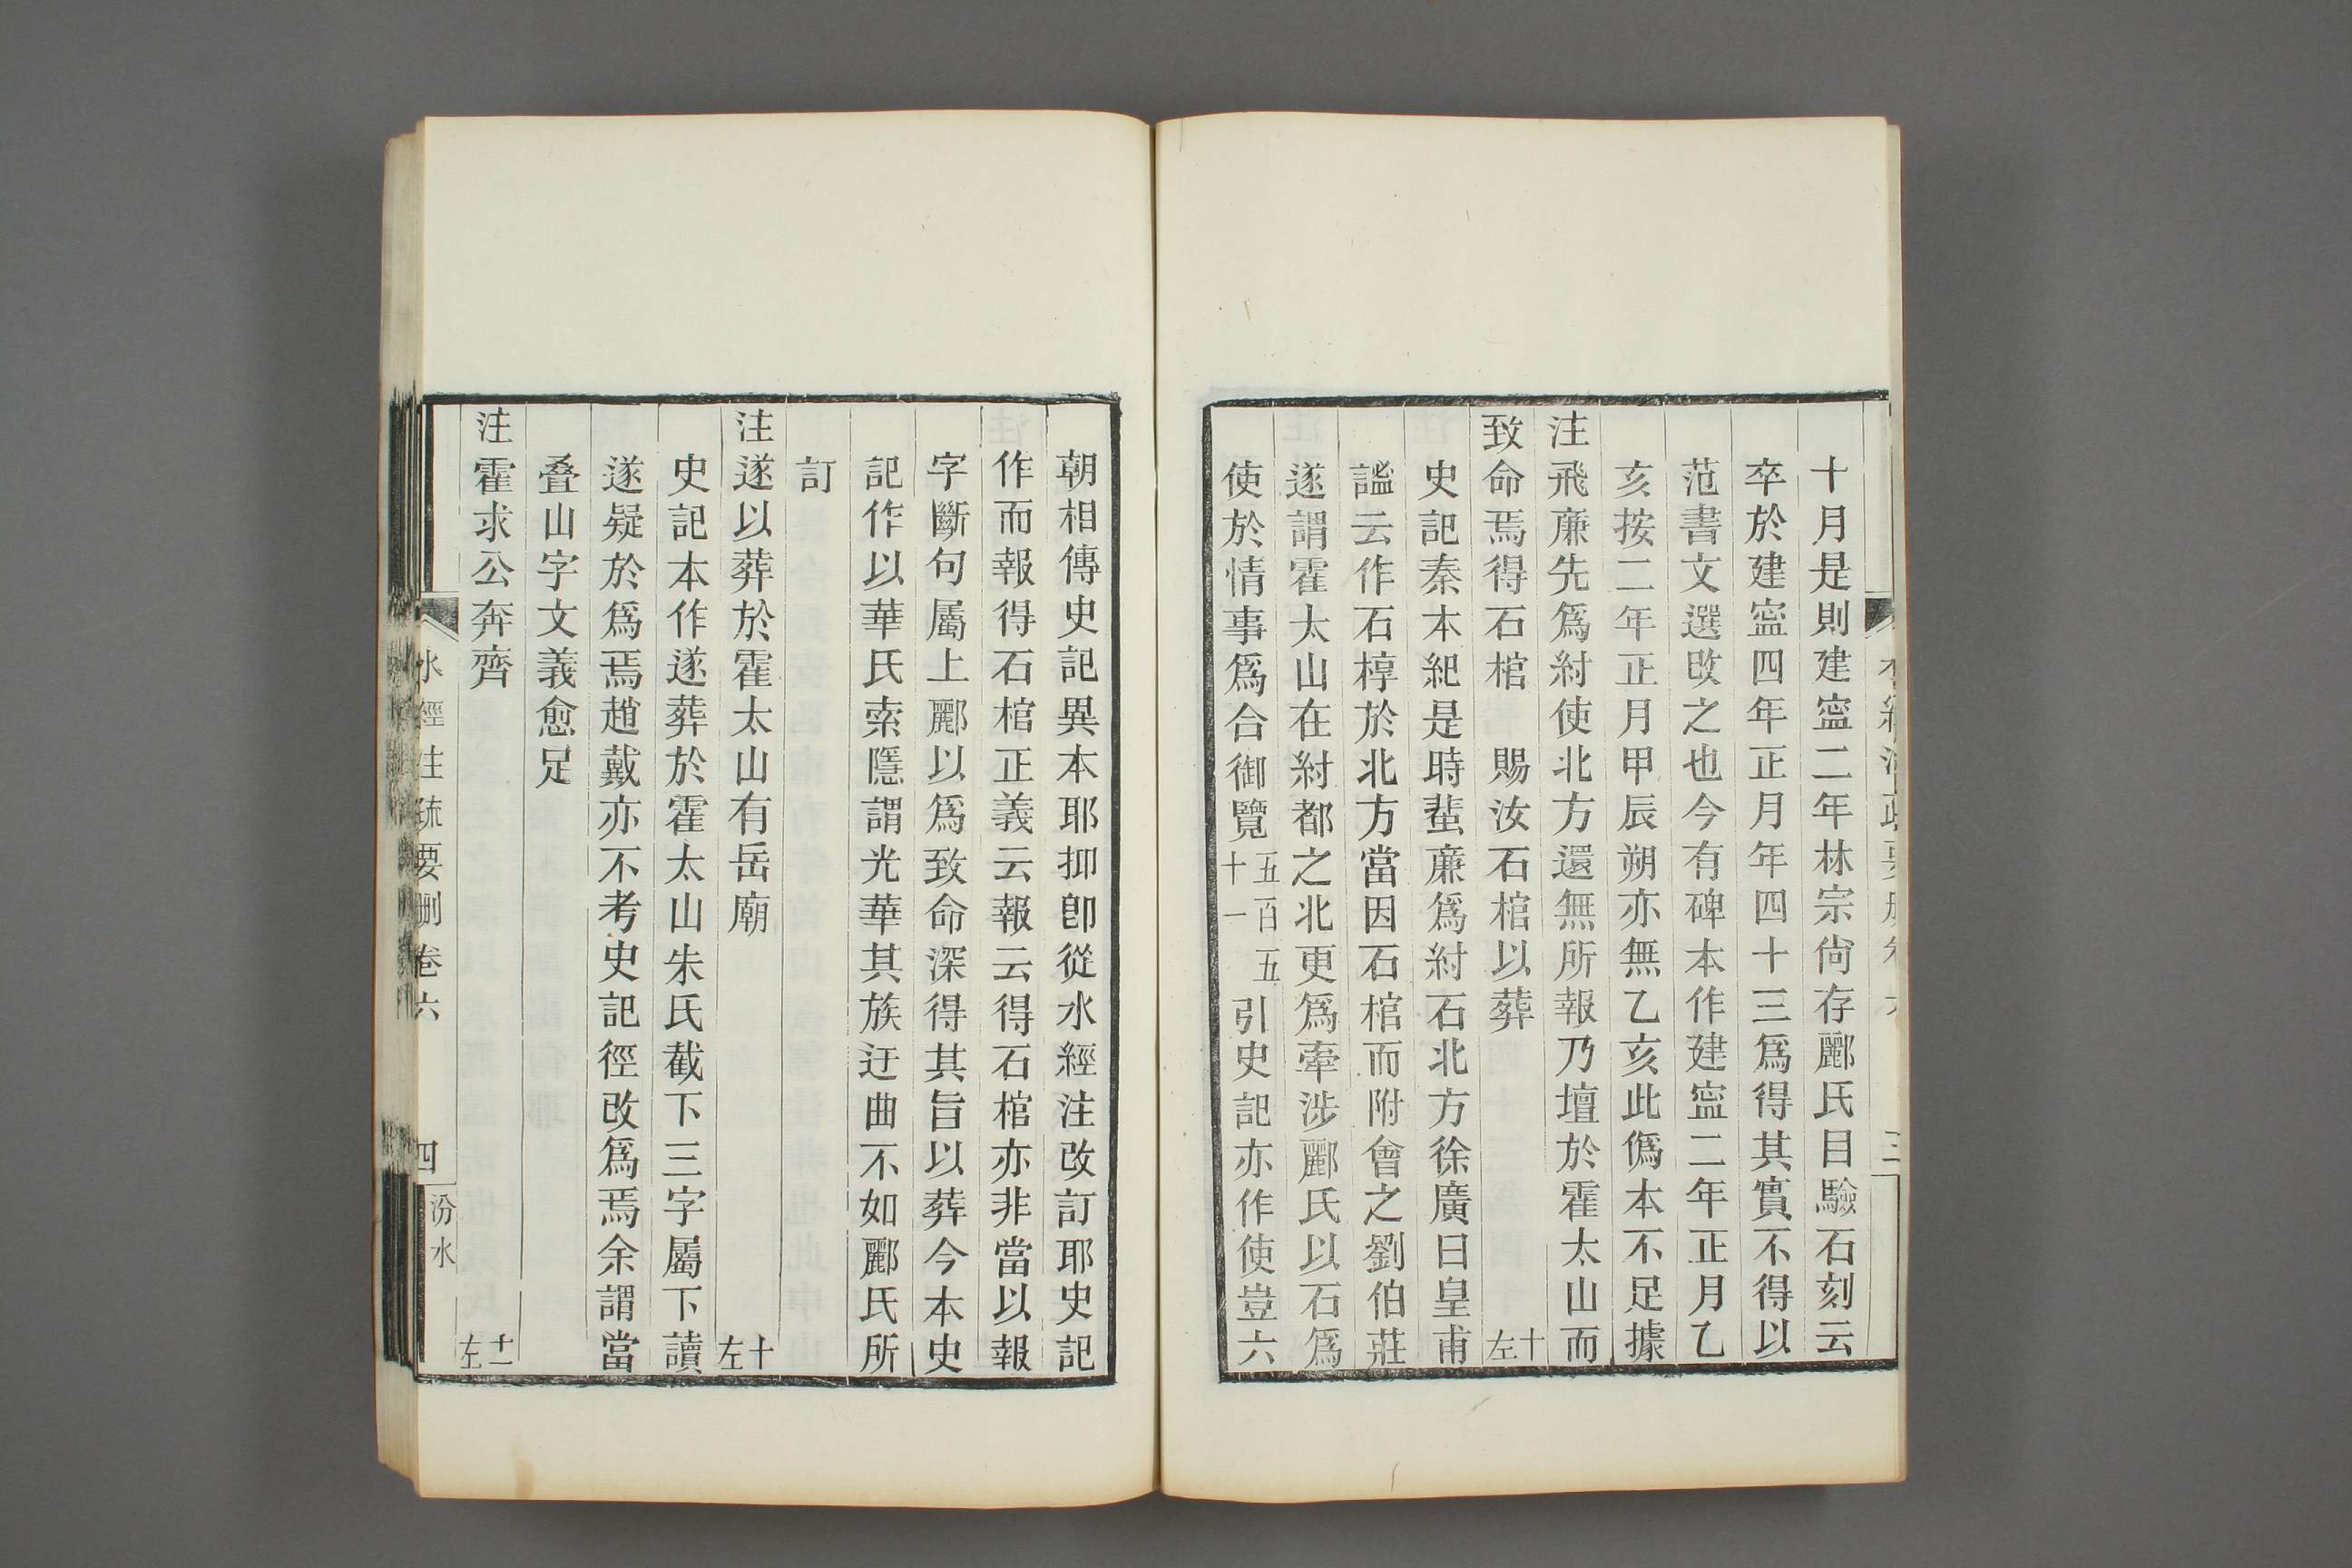 十月是則建寍二年林宗尙存酈氏目驗石刻云
卒於建寍四年正月年四十三爲得其實不得以
范書文選改之也今有碑本作建寍二年正月乙
亥按二年正月甲辰朔亦無乙亥此僞本不足據
注飛廉先爲紂使北方還無所報乃壇於霍太山而
致命焉得石棺　賜汝石棺以葬　十左
史記秦本紀是時蜚廉爲紂石北方徐廣曰皇甫
謐云作石椁於北方當因石棺而附會之劉伯莊
遂謂霍太山在紂都之北更爲牽涉酈氏以石爲
使於情事爲合御覽五百五十一五引史記亦作使豈六
朝相傳史記異本耶抑卽從水經注改訂耶史記
作而報得石棺正義云報云得石棺亦非當以報
字斷句屬上酈以爲致命深得其旨以葬今本史
記作以華氏索隱謂光華其族迂曲不如酈氏所
訂
注遂以葬於霍太山有岳廟　十左
史記本作遂葬於霍太山朱氏截下三字屬下讀
遂疑於爲焉趙戴亦不考史記徑改爲焉余謂當
叠山字文義愈足
注霍求公奔齊　十一左
水經注疏要刪卷六　四　汾水